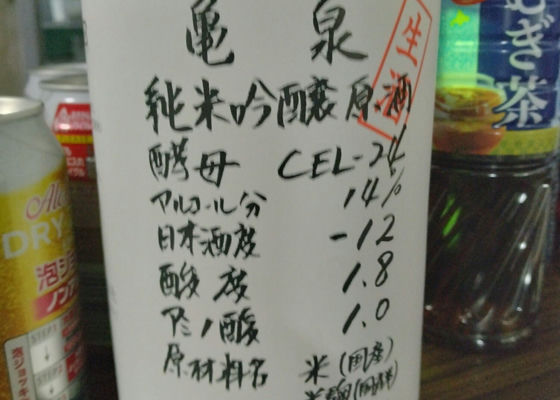 亀 泉
生酒
純米吟醸原酒
酵母 CEL-24
アルコール分 14%
日本酒度 -12
酸度 1.8
アミノ酸 1.0
原材料名 米(国産)
米麹(国産)
むぎ茶
DRY
泡ジョッ
STEP1
泡ジョッキ